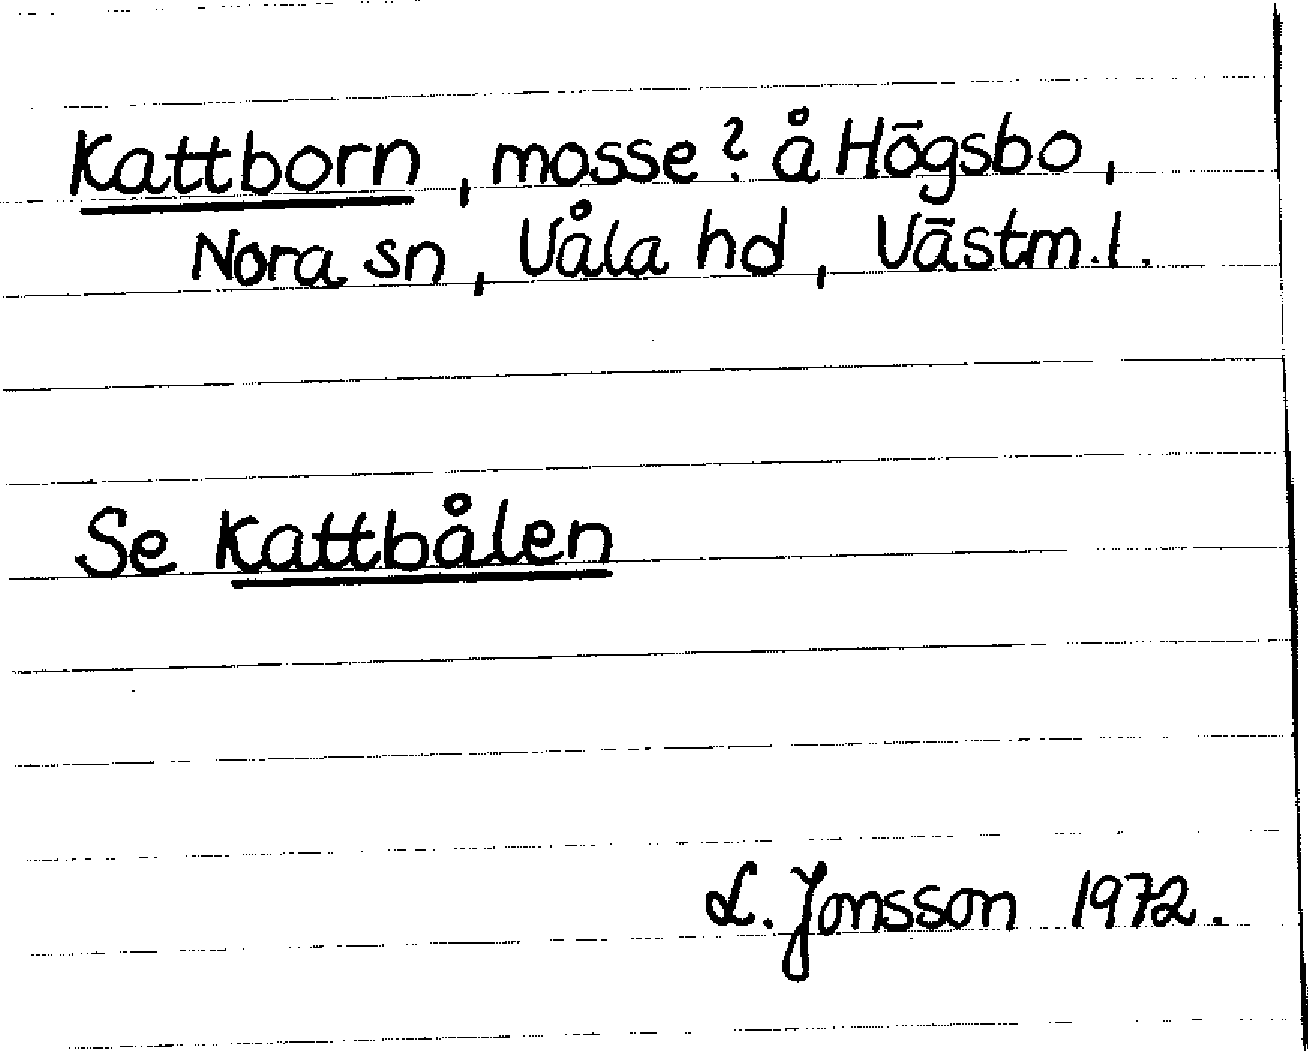 Kattborn, mosse? å Högsbo,
Nora sn, Våla hd, Västm.l.
Se Kattbålen
L. Jonsson 1972.